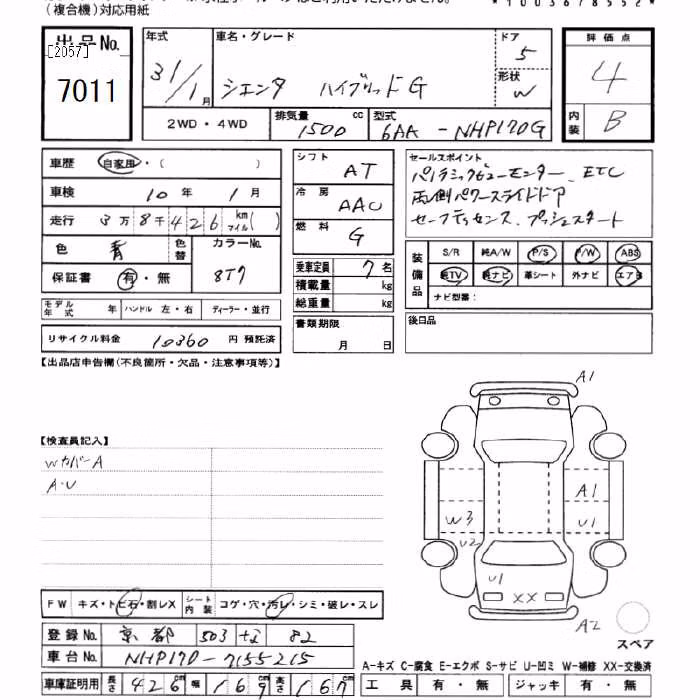 （複合機）対応用紙
出品No.
[2057]
7011
年式
31/1月
車名・グレード
シエンタ ハイブリッドG
ドア
5
形状
W
評価点
4
内装
B
2WD・4WD
排気量
1500 cc
型式
6AA-NHP170G
車歴
自家用・( )
車検
10年 1月
走行
3万8千426 km マイル( )
色
青
色替
カラーNo.
8T7
保証書
有・無
シフト
AT
冷房
AAC
燃料
G
乗車定員
7名
積載量
kg
総重量
kg
書類期限
月 日
セールスポイント
パノラミックビューモニター、ETC
両側パワースライドドア
セーフティセンス、プッシュスタート
装備品
S/R 純A/W P/S P/W ABS
純TV 純ナビ 革シート 外ナビ エアB
ナビ型番：
後日品
モデル年式 年 ハンドル 左・右 ディーラー・並行
リサイクル料金
10360 円 預託済
【出品店申告欄(不良箇所・欠品・注意事項等)】
【検査員記入】
WカバーA
A・U
A1
A1
W3
U1
U2
U1
XX
A2
スペア
FW キズ・トビ石・割レX
シート内装 コゲ・穴・汚レ・シミ・破レ・スレ
登録No.
京都 503 82
車台No.
NHP170-7155215
車庫証明用 長さ 426cm 幅 169cm 高さ 167cm
A-キズ C-腐食 E-エクボ S-サビ U-凹ミ W-補修 XX-交換済
工具 有・無 ジャッキ 有・無